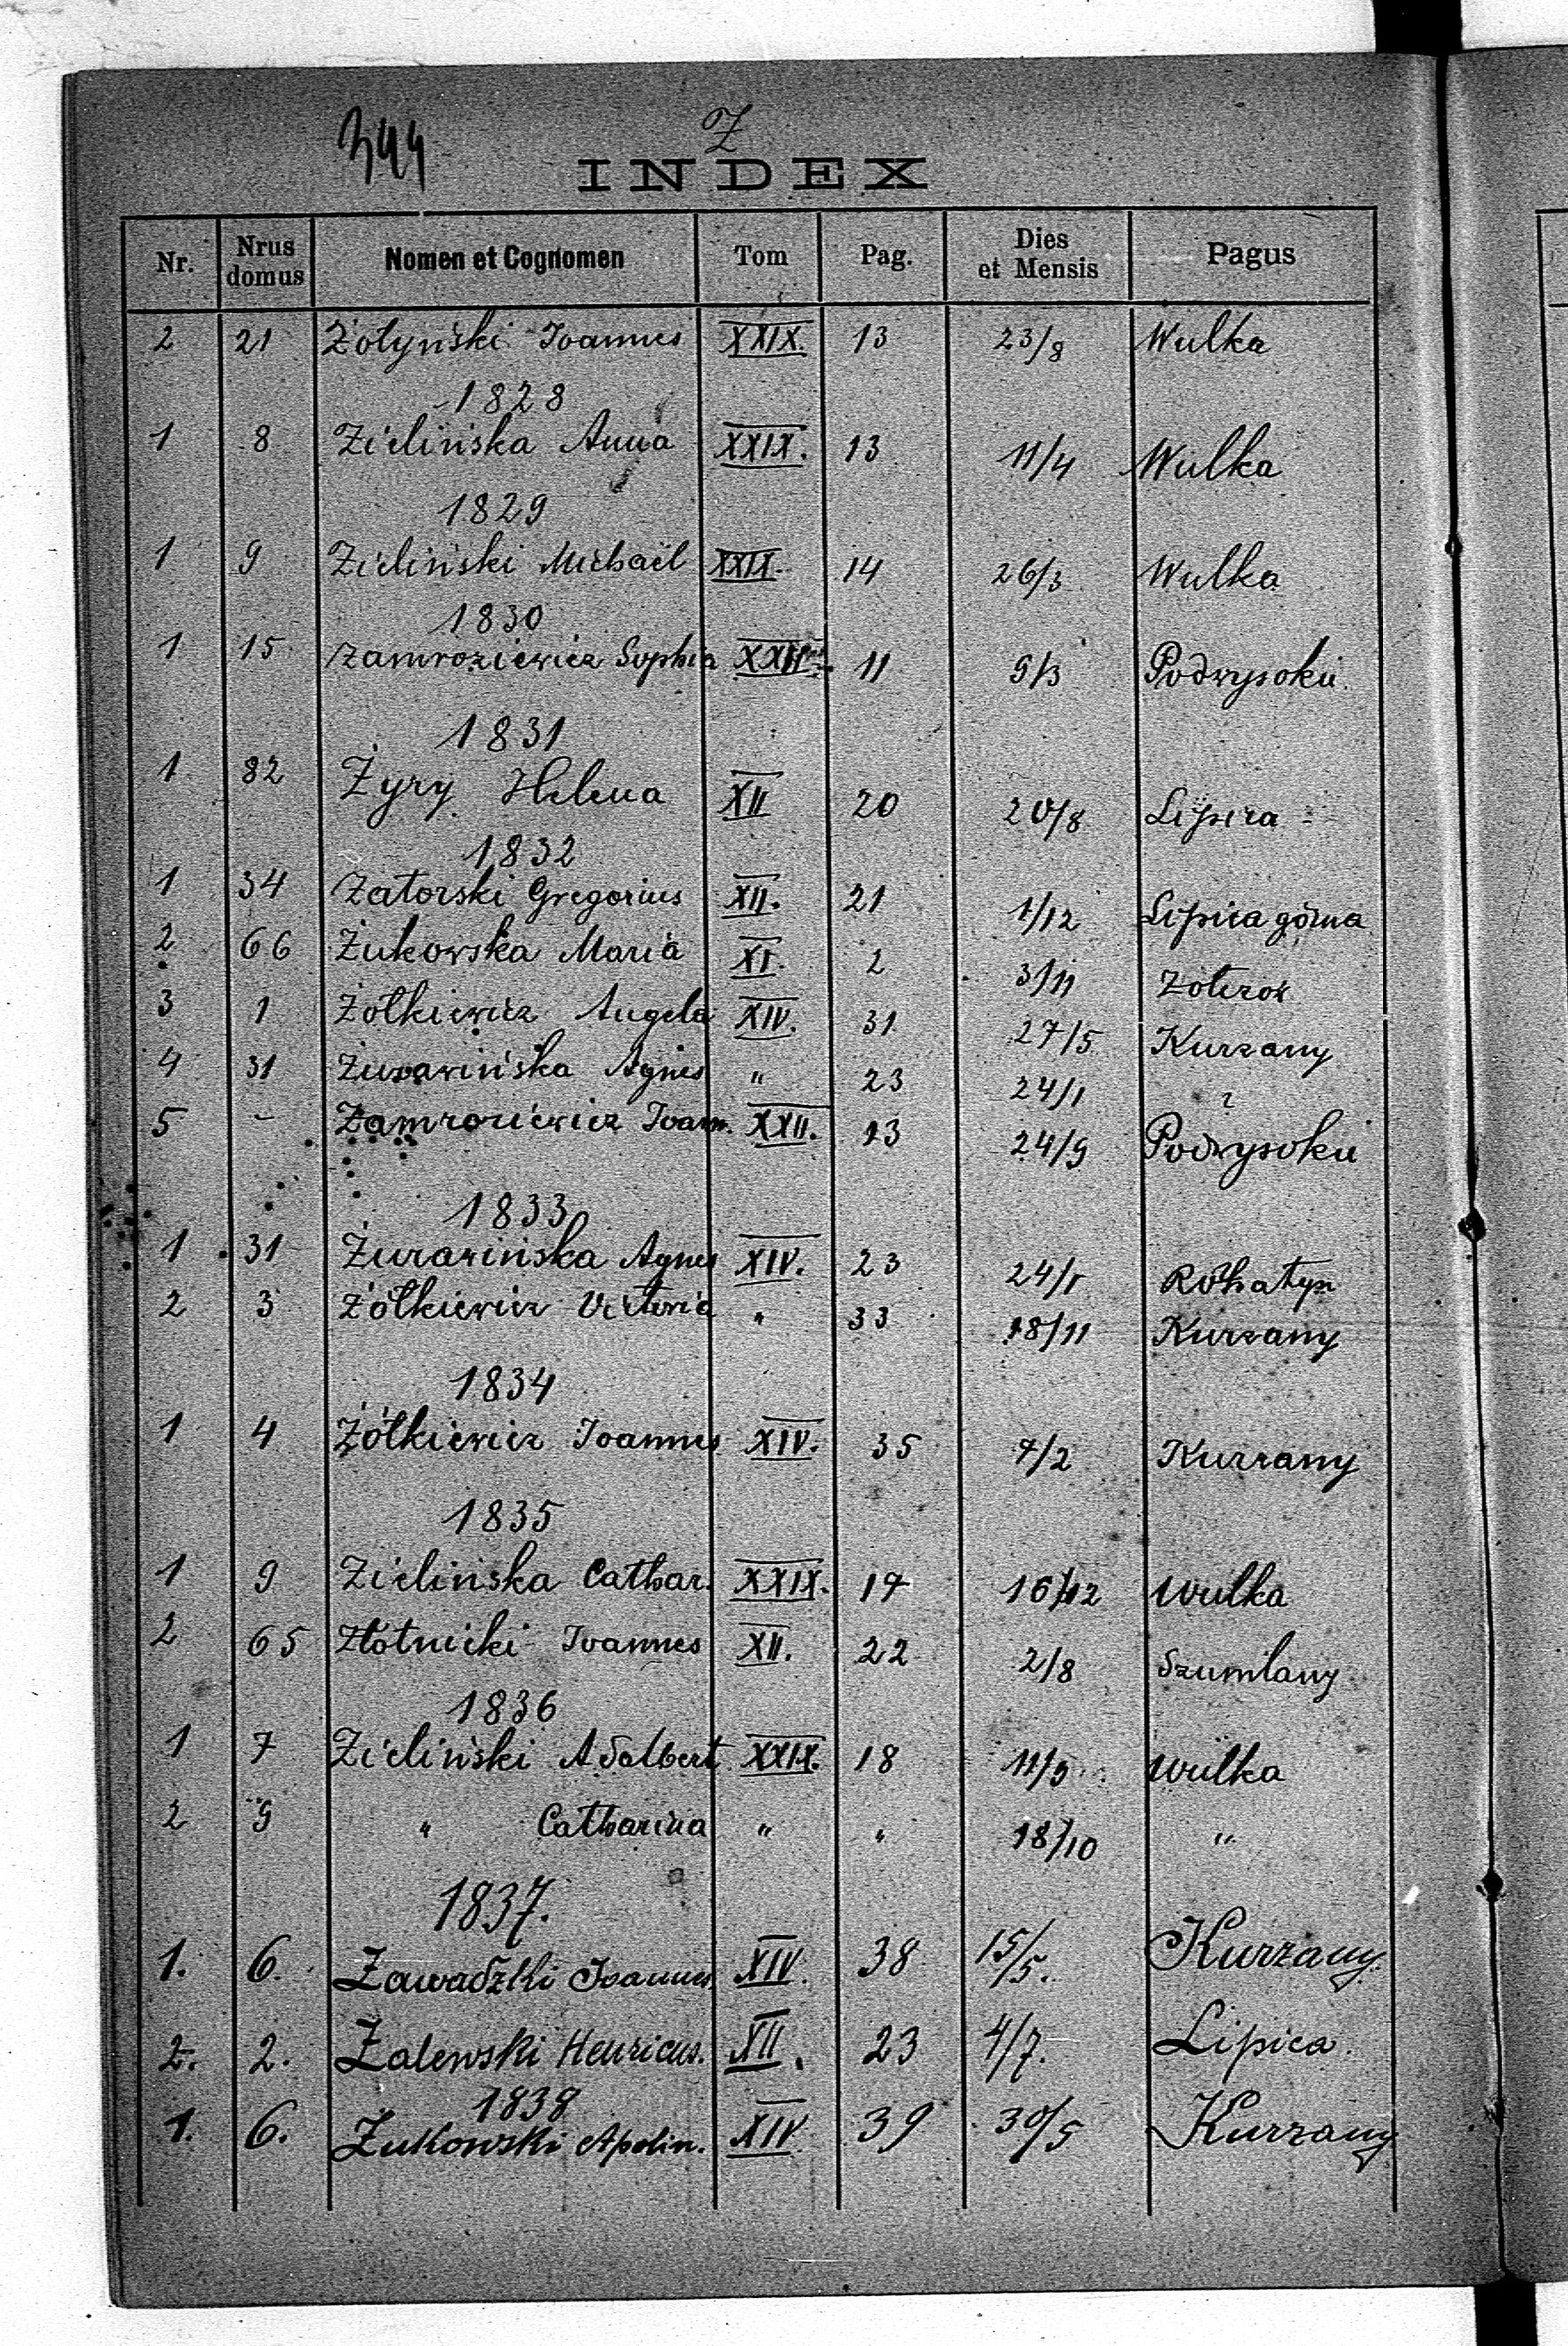 344
Z
INDEX
Nr. Nrus domus Nomen et Cognomen Tom Pag. Dies et Mensis Pagus
2 21 Żołyński Joannes XXIX. 13 23/8 Wulka
1828
1 8 Zielińska Anna XXIX. 13 11/4 Wulka
1829
1 9 Zieliński Michaël XXIX. 14 26/3 Wulka
1830
1 15 Zamroziewicz Sophia XXII. 11 9/3 Podwysokie
1831
1 82 Żyry Helena XII 20 20/8 Lipica
1832
1 34 Zatorski Gregorius XII. 21 1/12 Lipica górna
2 66 Żukowska Maria XI. 2 3/11
3 1 Żółkiewicz Angela XIV. 31 27/5 Kurzany
4 31 Żurawińska Agnes " 23 24/1 ?
5 - Zamroziewicz Joann. XXII. 13 24/9 Podwysokie
1833
1 31 Żurawińska Agnes XIV. 23 24/1 Rohatyn
2 3 Żółkiewicz Victoria " 33 18/11 Kurzany
1834
1 4 Żółkiewicz Joannes XIV. 35 7/2 Kurzany
1835
1 9 Zielińska Cathar. XXIX. 17 16/12 Wulka
2 65 Złotnicki Joannes XII. 22 2/8 Szumlany
1836
1 7 Zieliński Adalbert XXIX. 18 11/5 Wulka
2 9 " Catharina " " 18/10 "
1837.
1. 6. Zawadzki Joannes XIV. 38 15/5. Kurzany.
2. 2. Zalewski Henricus. XII. 23 4/7. Lipica.
1838
1. 6. Żukowski Apolin. XIV. 39 30/5 Kurzany